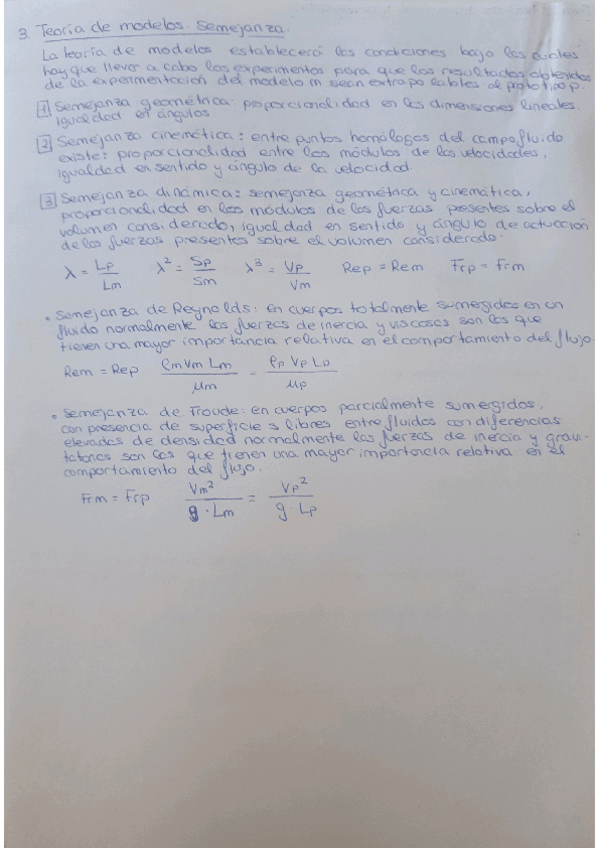 3. Teoría de modelos. Semejanza.
La teoría de modelos establecerá las condiciones bajo las cuales
hay que llevar a cabo los experimentos para que los resultados obtenidos
de la experimentación del modelo m sean extrapolables al prototipo p.
1 Semejanza geométrica: proporcionalidad en las dimensiones lineales.
Igualdad en ángulos
2 Semejanza cinemática: entre puntos homólogos del campo fluido
existe: proporcionalidad entre los módulos de las velocidades,
igualdad en sentido y ángulo de la velocidad.
3 Semejanza dinámica: semejanza geométrica y cinemática,
proporcionalidad en los módulos de las fuerzas presentes sobre el
volumen considerado, igualdad en sentido y ángulo de actuación
de las fuerzas presentes sobre el volumen considerado.
λ = Lp/Lm λ² = Sp/Sm λ³ = Vp/Vm Rep = Rem Frp = Frm
• Semejanza de Reynolds: en cuerpos totalmente sumergidos en un
fluido normalmente las fuerzas de inercia y viscosas son las que
tienen una mayor importancia relativa en el comportamiento del flujo.
Rem = Rep ρm Vm Lm / μm = ρp Vp Lp / μp
• Semejanza de Froude: en cuerpos parcialmente sumergidos,
con presencia de superficies libres entre fluidos con diferencias
elevadas de densidad normalmente las fuerzas de inercia y gravi-
tatorias son las que tienen una mayor importancia relativa en el
comportamiento del flujo.
Frm = Frp Vm² / g · Lm = Vp² / g · Lp